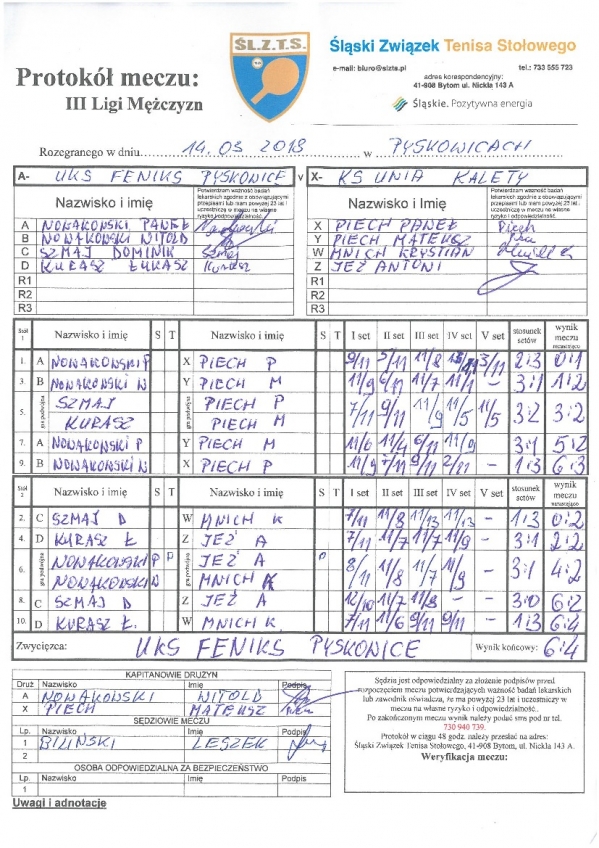 ŚL.Z.T.S.
Śląski Związek Tenisa Stołowego
e-mail: biuro@slzts.pl tel.: 733 555 723
adres korespondencyjny:
41-908 Bytom ul. Nickla 143 A
Śląskie. Pozytywna energia
Protokół meczu:
III Ligi Mężczyzn
Rozegranego w dniu 14.03 2018 w PYSKOWICACH
A- UKS FENIKS PYSKOWICE v X- KS UNIA KALETY
Nazwisko i imię Nazwisko i imię
A NOWAKOWSKI PAWEŁ X PIECH PAWEŁ Piech
B NOWAKOWSKI WITOLD Y PIECH MATEUSZ
C SZMAJ DOMINIK Szmaj W MNICH KRYSTIAN
D KURASZ ŁUKASZ Kurasz Z JEŻ ANTONI
R1 R1
R2 R2
R3 R3
Stół 1 Nazwisko i imię S T Nazwisko i imię S T I set II set III set IV set V set stosunek setów wynik meczu
1. A NOWAKOWSKI P X PIECH P 9/11 5/11 11/8 3/11 2:3 0:1
3. B NOWAKOWSKI W Y PIECH M 11/9 6/11 11/7 11/1 - 3:1 1:2
5. gra podwójna SZMAJ KURASZ PIECH P PIECH M 7/11 9/11 11/9 11/5 11/5 3:2 3:2
7. A NOWAKOWSKI P Y PIECH M 11/6 11/4 6/11 11/9 3:1 5:2
9. B NOWAKOWSKI W X PIECH P 11/9 7/11 9/11 2/11 - 1:3 6:3
Stół 2 Nazwisko i imię S T Nazwisko i imię S T I set II set III set IV set V set stosunek setów wynik meczu
2. C SZMAJ D W MNICH K 7/11 11/8 11/13 11/13 - 1:3 0:2
4. D KURASZ Ł Z JEŻ A 7/11 11/7 11/7 11/9 - 3:1 2:2
6. gra podwójna NOWAKOWSKI P NOWAKOWSKI W JEŻ A MNICH K 8/11 11/8 11/7 11/9 3:1 4:2
8. C SZMAJ D Z JEŻ A 12/10 11/7 11/8 - - 3:0 6:2
10. D KURASZ Ł. W MNICH K. 7/11 11/6 9/11 9/11 - 1:3 6:4
Zwycięzca: UKS FENIKS PYSKOWICE Wynik końcowy: 6:4
KAPITANOWIE DRUŻYN
Druż Nazwisko Imię Podpis
A NOWAKOWSKI WITOLD
X PIECH MATEUSZ
SĘDZIOWIE MECZU
Lp. Nazwisko Imię Podpis
1 BILIŃSKI LESZEK
2
OSOBA ODPOWIEDZIALNA ZA BEZPIECZEŃSTWO
Lp. Nazwisko Imię Podpis
1
Uwagi i adnotacje
Sędzia jest odpowiedzialny za złożenie podpisów przed
rozpoczęciem meczu potwierdzających ważność badań lekarskich
lub zawodnik oświadcza, że ma powyżej 23 lat i uczestniczy w
meczu na własne ryzyko i odpowiedzialność.
Po zakończonym meczu wynik należy podać sms pod nr tel.
730 940 739.
Protokół w ciągu 48 godz. należy przesłać na adres:
Śląski Związek Tenisa Stołowego, 41-908 Bytom, ul. Nickla 143 A.
Weryfikacja meczu: